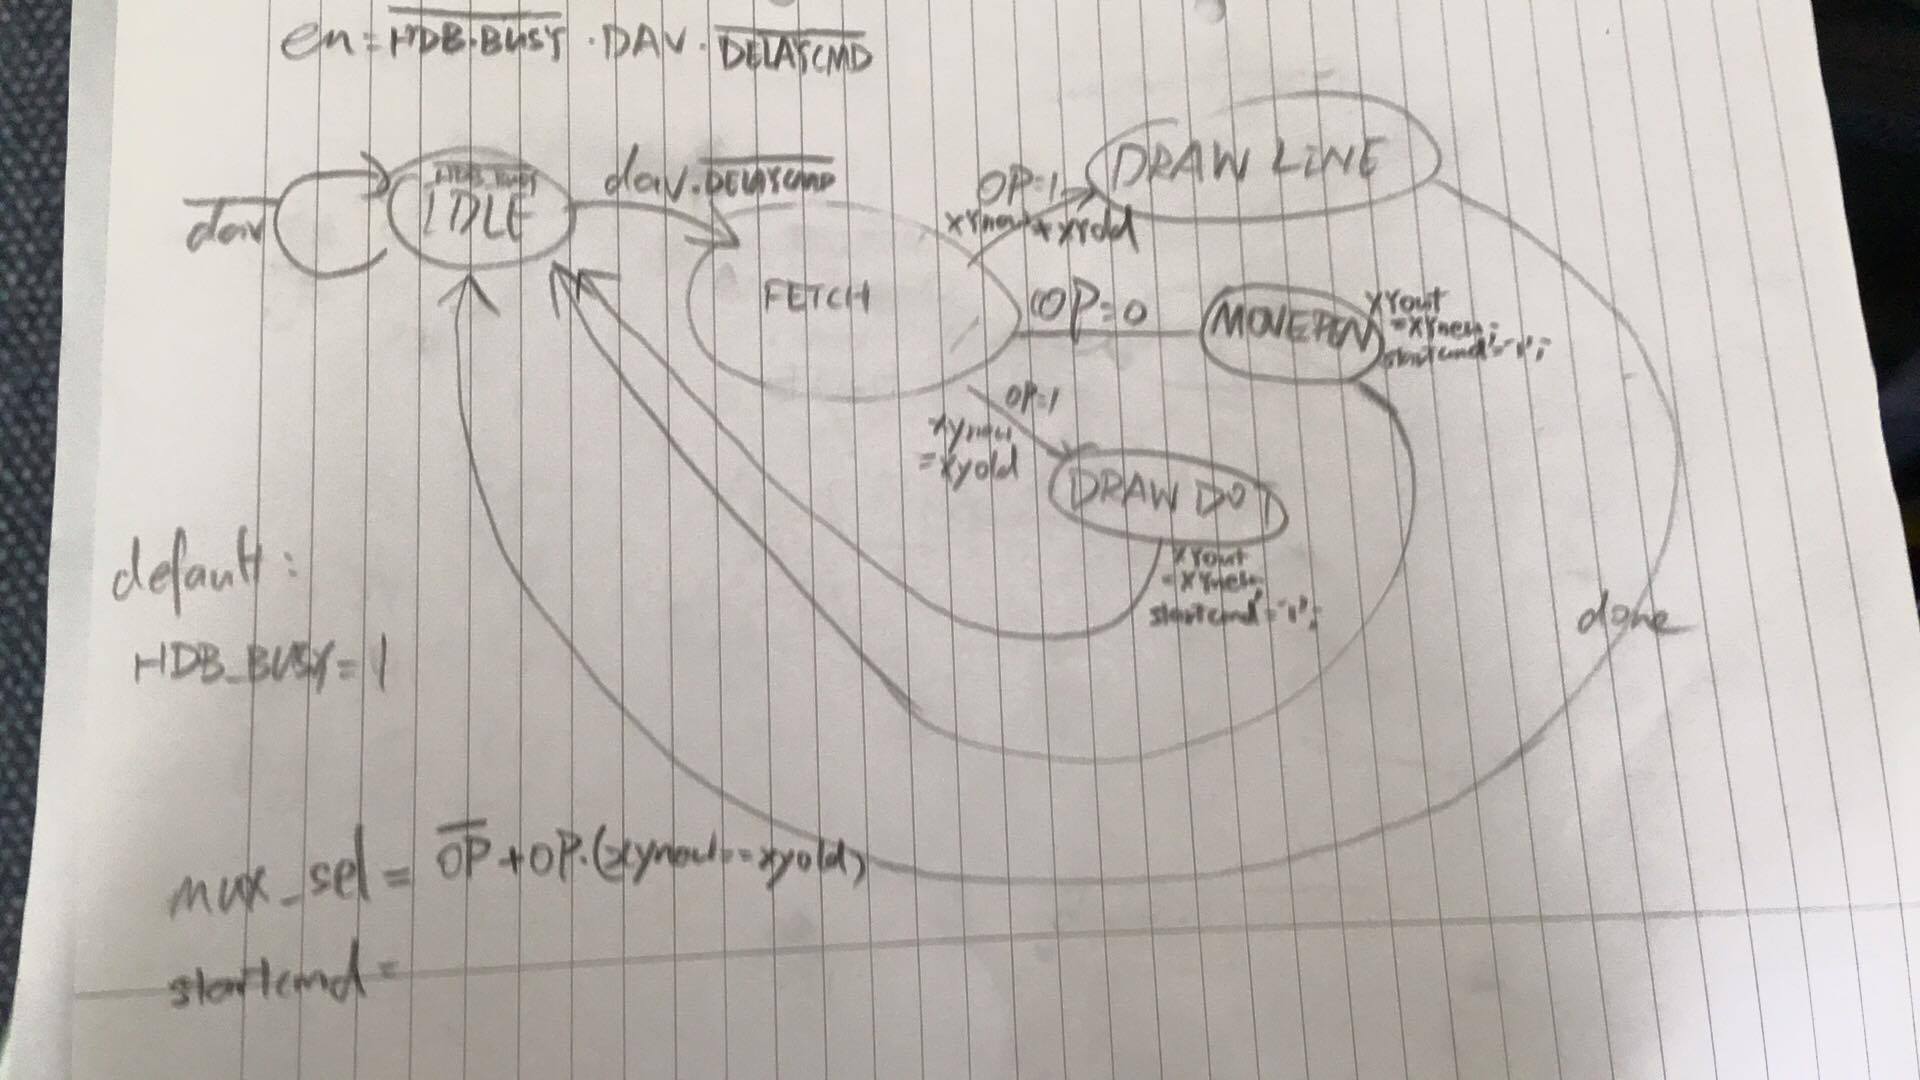 en = H̅D̅B̅·̅B̅U̅S̅Y̅ · DAV · D̅E̅L̅A̅Y̅C̅M̅D̅
d̅a̅v̅
H̅D̅B̅_̅B̅U̅S̅Y̅
IDLE
dav. D̅E̅L̅A̅Y̅C̅M̅D̅
FETCH
OP=1
xyold
DRAW LINE
OP=0
MOVEPEN
XYout
= XYnew;
startcmd = '1';
OP=1
xynew
= xyold
DRAW DOT
XYout
= XYnew;
startcmd = '1';
done
default:
HDB_BUSY = 1
mux_sel = O̅P̅ + OP.(xynew == xyold)
startcmd =